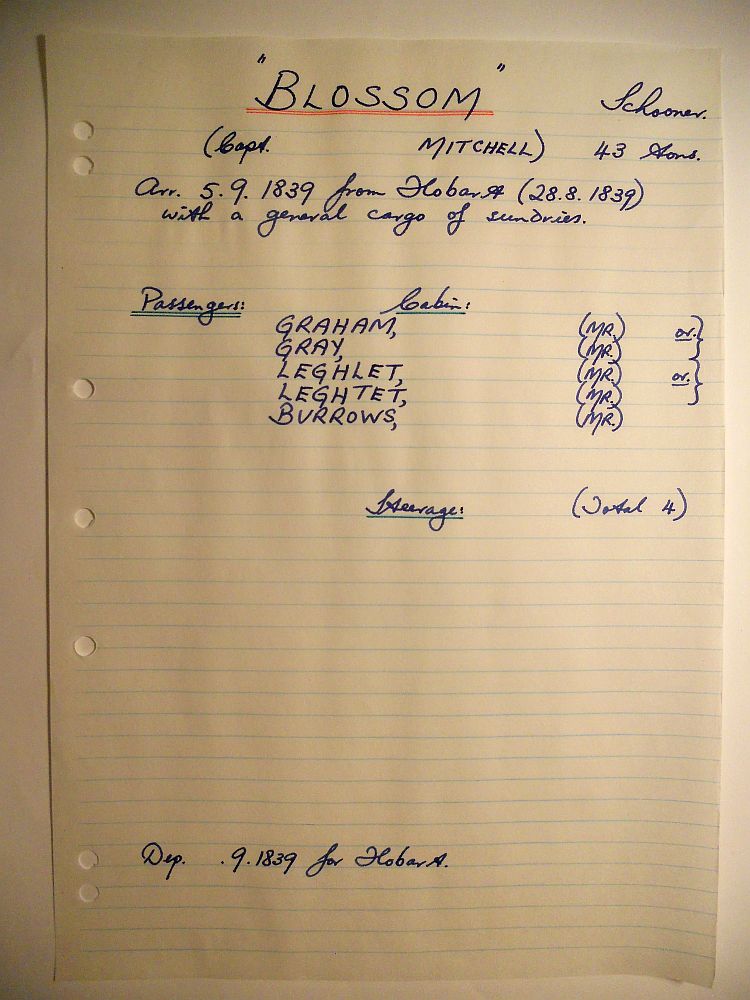 "BLOSSOM" Schooner.
(Capt. MITCHELL) 43 tons.
Arr. 5.9.1839 from Hobart (28.8.1839)
with a general cargo of sundries.
Passengers: Cabin:
GRAHAM, (MR.) or. }
GRAY, (MR.)
LEGHLET, (MR.) or. }
LEGHTET, (MR.)
BURROWS, (MR.)
Steerage: (Total 4)
Dep. .9.1839 for Hobart.